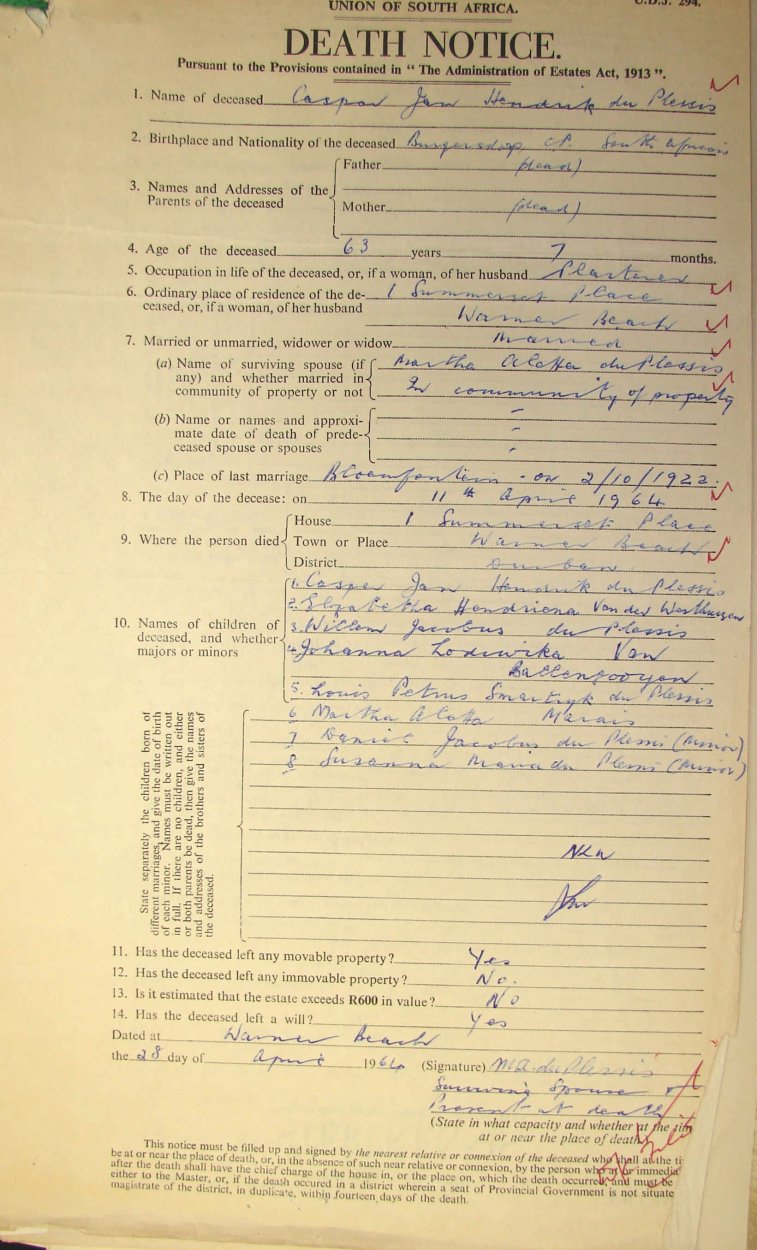 UNION OF SOUTH AFRICA.
U.D.J. 294.
DEATH NOTICE.
Pursuant to the Provisions contained in " The Administration of Estates Act, 1913 ".
1. Name of deceased Caspar Jan Hendrik du Plessis
2. Birthplace and Nationality of the deceased Burgersdorp, C.P. South African
3. Names and Addresses of the Parents of the deceased
Father (dead)
Mother (dead)
4. Age of the deceased 63 years 7 months.
5. Occupation in life of the deceased, or, if a woman, of her husband Plasterer
6. Ordinary place of residence of the de- 1 Summerset Place
ceased, or, if a woman, of her husband
Warner Beach
7. Married or unmarried, widower or widow Married
(a) Name of surviving spouse (if Martha Aletta du Plessis
any) and whether married in
community of property or not In community of property
(b) Name or names and approxi- -
mate date of death of prede- -
ceased spouse or spouses -
(c) Place of last marriage Bloemfontein - on 2/10/1922.
8. The day of the decease: on 11th April 1964
9. Where the person died
House 1 Summerset Place
Town or Place Warner Beach
District Durban
10. Names of children of deceased, and whether majors or minors
1. Casper Jan Hendrik du Plessis
2. Elizabetha Hendriena Van der Westhuizen
3. Willem Jacobus du Plessis
4. Johanna Lodewika Van
Ballengooyen
5. Louis Petrus du Plessis
6 Martha Aletta Marais
7 Daniel Jacobus du Plessis (Minor)
8 Susanna Maria du Plessis (Minor)
State separately the children born of
different marriages, and give the date of birth
of each minor. Names must be written out
in full. If there are no children, and either
or both parents be dead, then give the names
and addresses of the brothers and sisters of
the deceased.
11. Has the deceased left any movable property? Yes
12. Has the deceased left any immovable property? No.
13. Is it estimated that the estate exceeds R600 in value? No
14. Has the deceased left a will? Yes
Dated at Warner Beach
the 28 day of April 1964 (Signature) M.A. du Plessis
Surviving Spouse &
Present at death
(State in what capacity and whether at the tim
at or near the place of death
This notice must be filled up and signed by the nearest relative or connexion of the deceased who shall at the ti
be at or near the place of death, or, in the absence of such near relative or connexion, by the person who at or immedia
after the death shall have the chief charge of the house in, or the place on, which the death occurred, and must be
either to the Master, or, if the death occured in a district wherein a seat of Provincial Government is not situate
magistrate of the district, in duplicate, within fourteen days of the death.